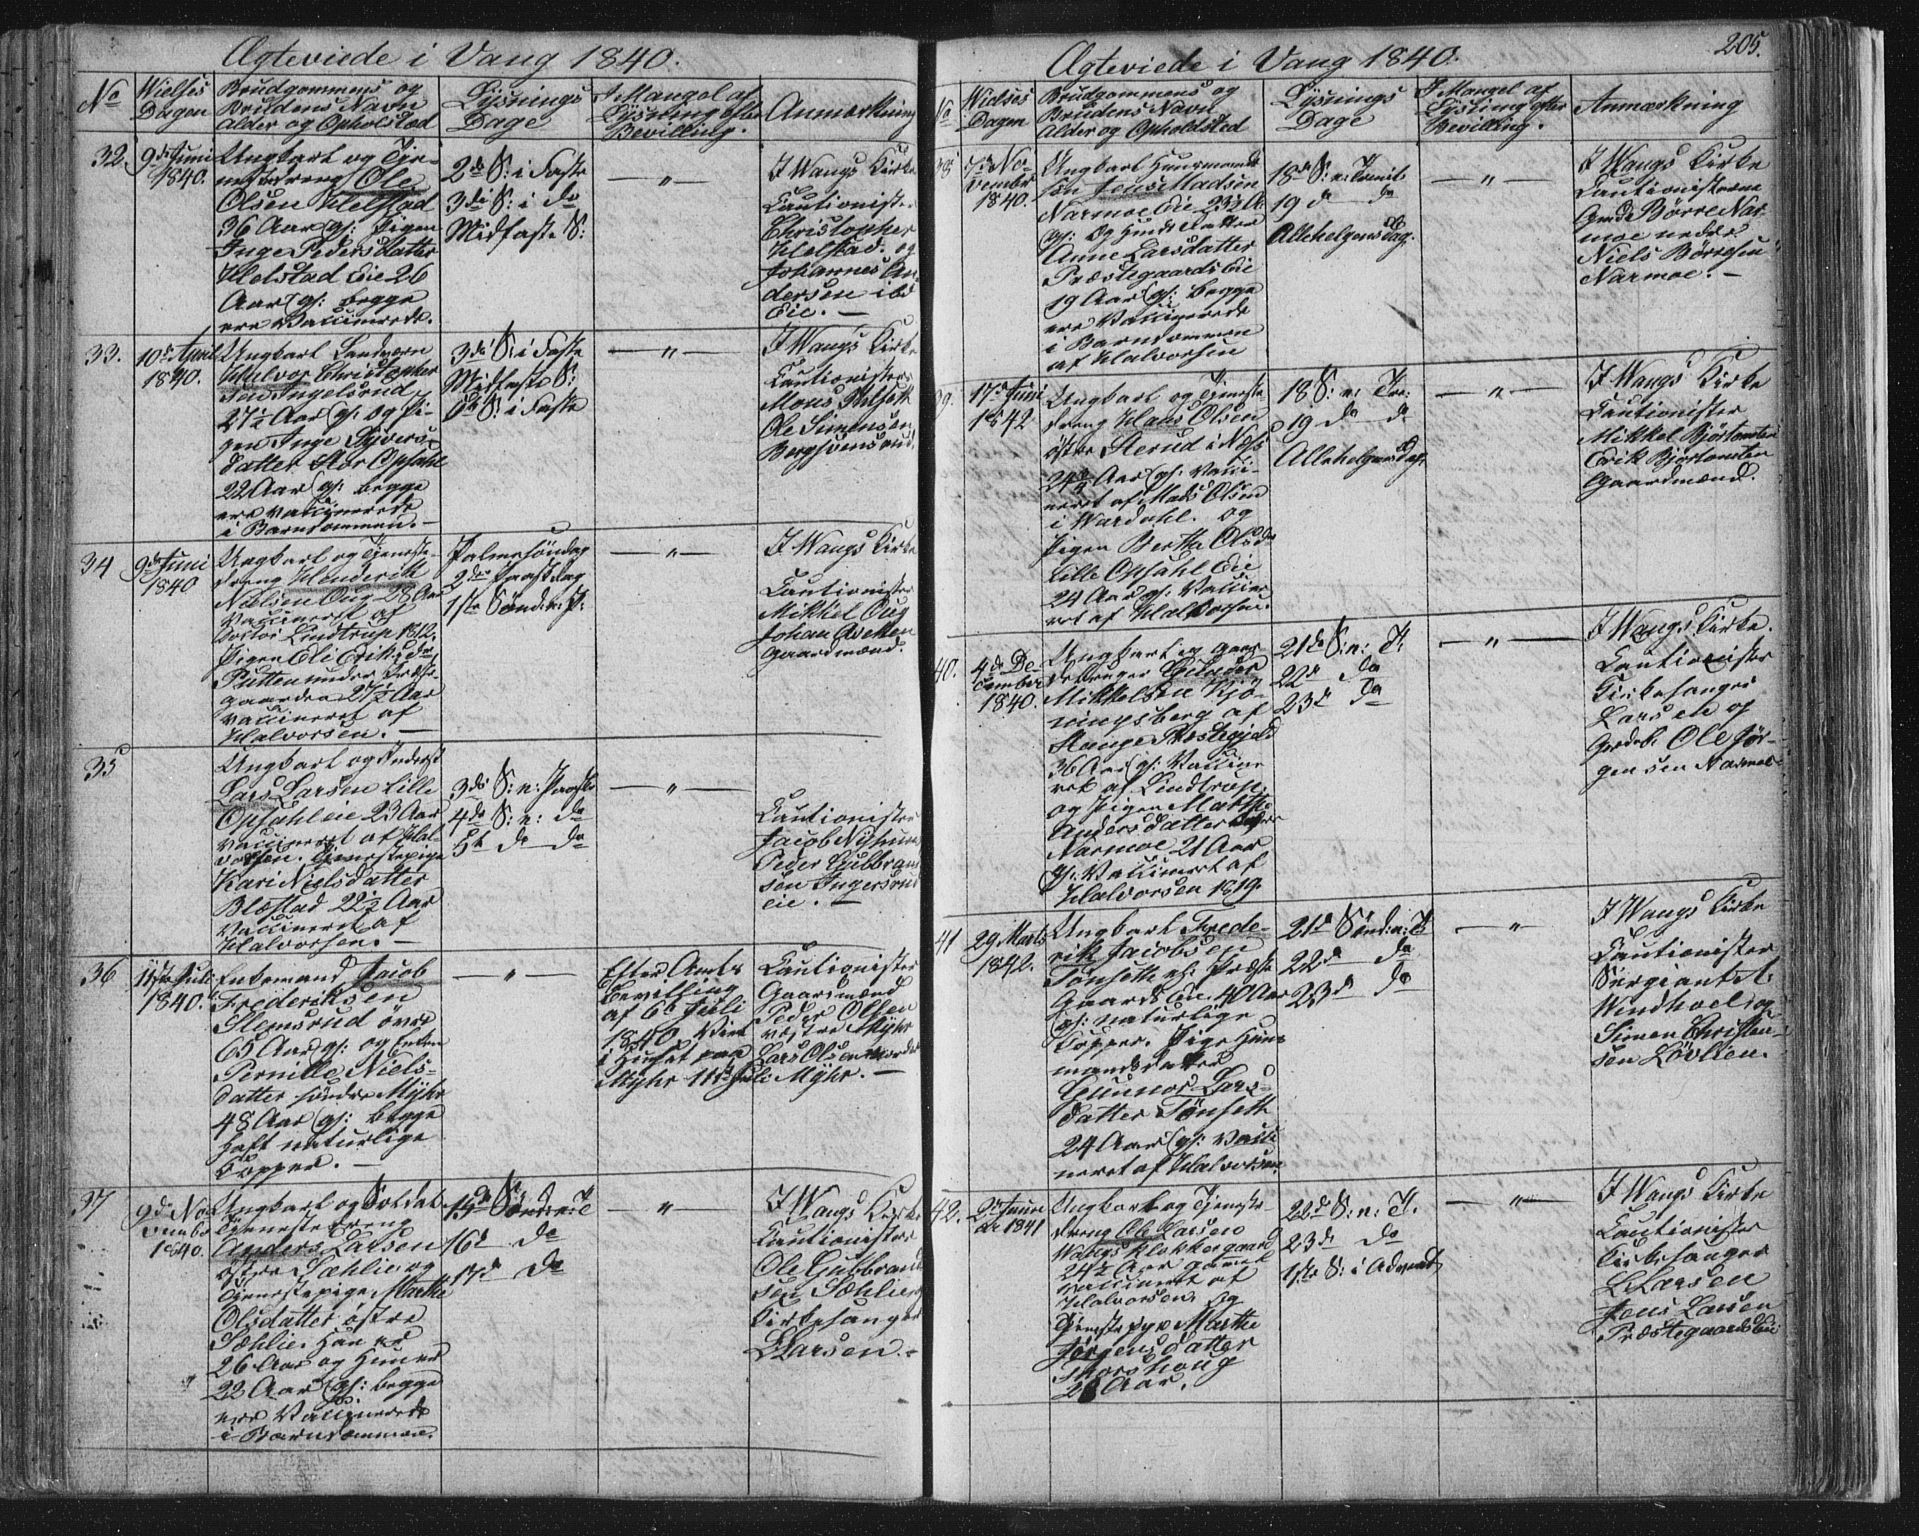 Ægteviede i Vang 1840.
No
Vielses Dagen
Brudgommens og
Brudens Navn
Alder og Opholsted
Lysnings
Dage
I Mangel af
Lysning efter
Bevilling.
Anmærkning
32.
9de Juni
1840.
Ungkarl og Tje-
nestedreng Ole
Olsen Helstad
36 Aar gl: Pigen
Inge Pedersdatter
Helstad Eie 26
Aar gl: begge
ere Vaccinerede.
2de S: i Faste
3die S: i do
Midfaste S:
— " —
I Wangs Kirke
Cautionister
Christopher
Helstad og
Johannes An-
dersen ibd
Eie. —
33.
10de April
1840.
Ungkarl Landværn
Halvor Christopher
sen Ingelsrud
27½ Aar gl: og Pi-
gen Inge Syvers-
datter Stor Opsahl
22 Aar gl: begge
ere vaccinerede
i Barndommen. —
3die S: i Faste
Midfaste S:
5te S: i Faste
— " —
I Wangs Kirke
Cautionister
Mons
Ole Simensen
34
9de Juni
1840
Ungkarl og Tjeneste-
dreng Henderik
Nielsen Oug 28 Aar
Vaccineret af
Doctor Lindtrup 1812.
Pigen Eli Eriksdr
Putten under Præste-
gaarden 27½ Aar
vaccineret af
Halvorsen. —
Palmesöndag
2den Paaskedag
1ste Sönd: n: P:
— " —
I Wangs Kirke
Cautionister
Mikkel Oug
Johan
Gaardmænd.
35
Ungkarl og Inderst
Lars Larsen Lille
Opsahleie 23 Aar
vaccineret af Hal-
vorsen. Tjenestepige
Kari Nielsdatter
Blæstad 22½ Aar
Vaccineret af
Halvorsen. —
3die S: n: Paaske
4de S: n: do
5te do do
— " —
Cautionister
Jacob Nyhuus
Peder Gulbrand
sen Ingersrud
eie. —
36
11te Juli
1840.
Enkemand Jacob
Frederiksen
Slemsrud övre
65 Aar gl: og Enken
Pernille Niels-
datter söndre Myhr
48 Aar gl: begge
haft naturlige
Copper. —
— " —
Efter Amts
Bevilling
af 6 Juli
1840 Viet
i Huset paa
Myhr 11te Juli
Cautionister
Gaardmænd
Peder Olsen
vestre Myhr
Lars Olsen nordre
Myhr. —
37
9de No-
vember
1840.
Ungkarl og Soldat
Tjenestedreng
Anders Larsen
östre Sæhlie og
Tjenestepige Marthe
Olsdatter östre
Sæhlie. Han er
26 Aar og Hun er
22 Aar gl: begge
ere Vaccinerede
i Barndommen.
15de Sönd: n: T
16de do
17de do
— " —
I Wangs Kirke
Cautionister
Ole Gulbrand
sen Sæhlie
Kirkesanger
Larsen. —
Ægteviede i Vang 1840.
205.
No
Vielses
Dagen
Brudgommens og
Brudens Navn
Alder og Opholdsted
Lysnings
Dage
I Mangel af
Lysning efter
Bevilling.
Anmærkning
38
7de No-
vember
1840.
Ungkarl Huusmands
sön Jens Madsen
Narmoe Eie 23½ Ar
gl: og
Anne Larsdatter
Præstegaards Eie
19 Aar gl: begge
ere Vaccinerede
i Barndommen
af Halvorsen
18de S: n: Trinit:
19 d do
Allehelgensdag.
— " —
I Wangs Kirke
Cautionisterne
Gmd Börre Nar-
moe nedre
Niels Börresen
Narmoe. —
39.
17de Juni
1842
Ungkarl og Tjeneste
dreng Hans Olsen
östre Sterud i Næs
24 Aar gl: Vacci-
neret af Mads Olsen
i Wardahl. og
Pigen Berthe Olsdr
Lille Opsahl Eie
24 Aar gl: Vaccine-
ret af Halvorsen.
18 S: n: Tre:
19 do do
Allehelgensdag.
— " —
I Wangs Kirke
Cautionister
Mikkel Björtomten
Erik Björtomten
Gaardmænd.
40.
4de De-
cember
1840.
Ungkarl og Gaar
debruger
Mikkelsen Kjö-
ningsberg af
Stange Præstegjeld
36 Aar gl: Vaccine-
ret af Lindtrup.
og Pigen Marthe
Andersdatter
Narmoe 21 Aar
gl: Vaccineret af
Halvorsen 1819.
21de S: n: T:
22de do
23de do
— " —
I Wangs Kirke.
Cautionister
Kirkesanger
Larsen og
Gmd Ole Jör-
gensen Narmoe
41
29 Marts
1842.
Ungkarl Frede-
rik Jacobsen
Tönseth Præste
Gaards Eie. 40 Aar
gl: naturlige
Copper. Pige Huus
mandsdatter
Gunnor Lars-
datter Tönseth
24 Aar gl: Vacci
neret af Halvorsen
21de Sönd: n: T
22de do
23de do
— " —
I Wangs Kirke
Cautionister
Sergiant A.
Windhoel og
Simen Christen-
sen Lövlien.
42.
2de Janu
ar 1841
Ungkarl og Tjeneste
dreng Ole Larsen
Wangs Klokkergaard
24½ Aar gammel
vaccineret af
Halvorsen. og
Tjenestepige Marthe
Jörgensdatter
Skorshoug
28 Aar.
22de S: n: T.
23de do
1ste S: i Advent
— " —
I Wangs Kirke
Cautionister
Kirkesanger
L Larsen
Jens Larsen
Præstegaardseie